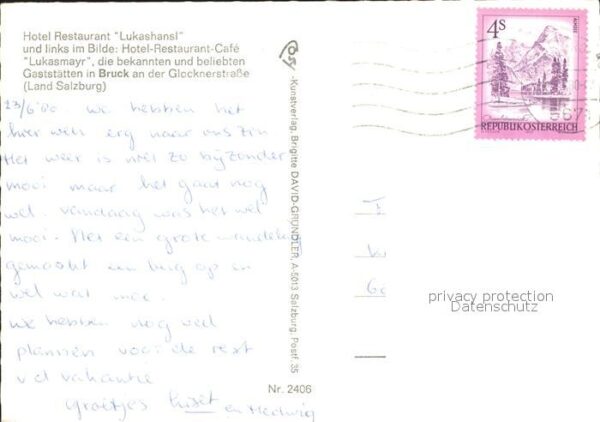 Hotel Restaurant "Lukashansl"
und links im Bilde: Hotel-Restaurant-Café
"Lukasmayr", die bekannten und beliebten
Gaststätten in Bruck an der Glocknerstraße
(Land Salzburg)
23/6'80 we hebben het
hier wel erg naar ons zin
Het weer is niet zo bijzonder
mooi maar het gaat nog
wel. vandaag was het wel
mooi. Met een grote wandeling
gemaakt een berg op en
wel wat moe.
we hebben nog veel
plannen voor de rest
v d vakantie
groetjes en Hedwig
-Kunstverlag, Brigitte DAVID-GRÜNDLER, A-5013 Salzburg, Postf. 35
Nr. 2406
4S
ALMSEE
REPUBLIK ÖSTERREICH
567
privacy protection
Datenschutz